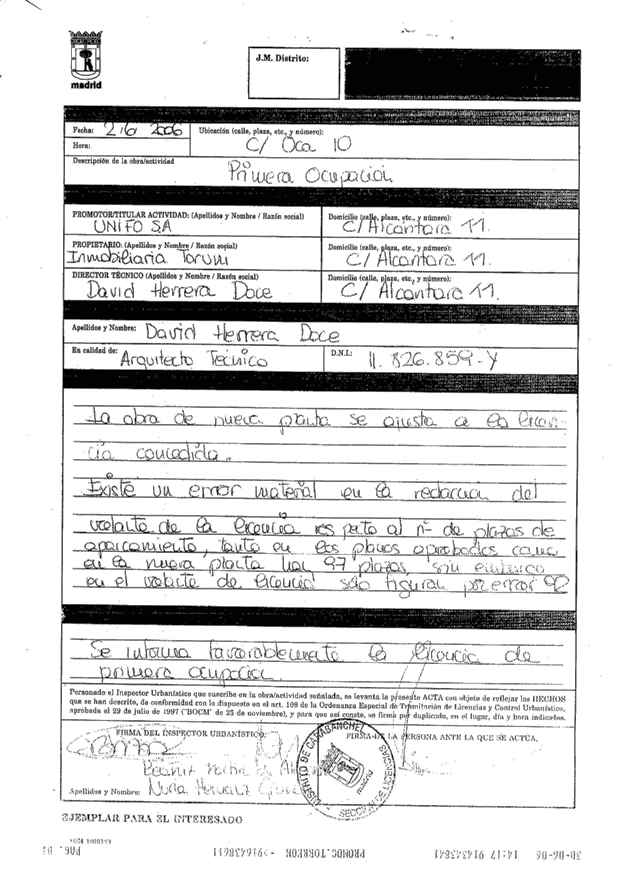 madrid
J.M. Distrito:
Fecha: 2/6/2006
Ubicación (calle, plaza, etc., y número):
C/ Oca 10
Hora:
Descripción de la obra/actividad
Primera Ocupación
PROMOTOR/TITULAR ACTIVIDAD: (Apellidos y Nombre / Razón social)
UNIFO SA
Domicilio (calle, plaza, etc., y número):
C/ Alcantara 11.
PROPIETARIO: (Apellidos y Nombre / Razón social)
Inmobiliaria Torum
Domicilio (calle, plaza, etc., y número):
C/ Alcantara 11.
DIRECTOR TÉCNICO (Apellidos y Nombre / Razón social)
David Herrera Doce
Domicilio (calle, plaza, etc., y número):
C/ Alcantara 11.
Apellidos y Nombre: David Herrera Doce
En calidad de: Arquitecto Técnico
D.N.I.: 11.826.859-Y
La obra de nueva planta se ajusta a la licen-
cia concedida.
Existe un error material en la redaccion del
volante de la licencia respecto al nº de plazas de
aparcamiento, tanto en los planos aprobados como
en la nueva planta hay 97 plazas, sin embargo
en el volante de licencia solo figuran por error 92
Se informa favorablemente la licencia de
primera ocupación.
Personado el Inspector Urbanístico que suscribe en la obra/actividad señalada, se levanta la presente ACTA con objeto de reflejar los HECHOS
que se han descrito, de conformidad con la dispuesto en el art. 109 de la Ordenanza Especial de Tramitación de Licencias y Control Urbanístico,
aprobada el 29 de julio de 1997 ("BOCM" de 23 de noviembre), y para que así conste, se firma por duplicado, en el lugar, día y hora indicados.
FIRMA DEL INSPECTOR URBANÍSTICO:
FIRMA DE LA PERSONA ANTE LA QUE SE ACTÚA,
DISTRITO DE CARABANCHEL
SECCION DE LICENCIAS
madrid
Apellidos y Nombre: Nuria
EJEMPLAR PARA EL INTERESADO
30-06-06 14:17 91643841
PROMOC.TORREON ->916438611
PAG. 01